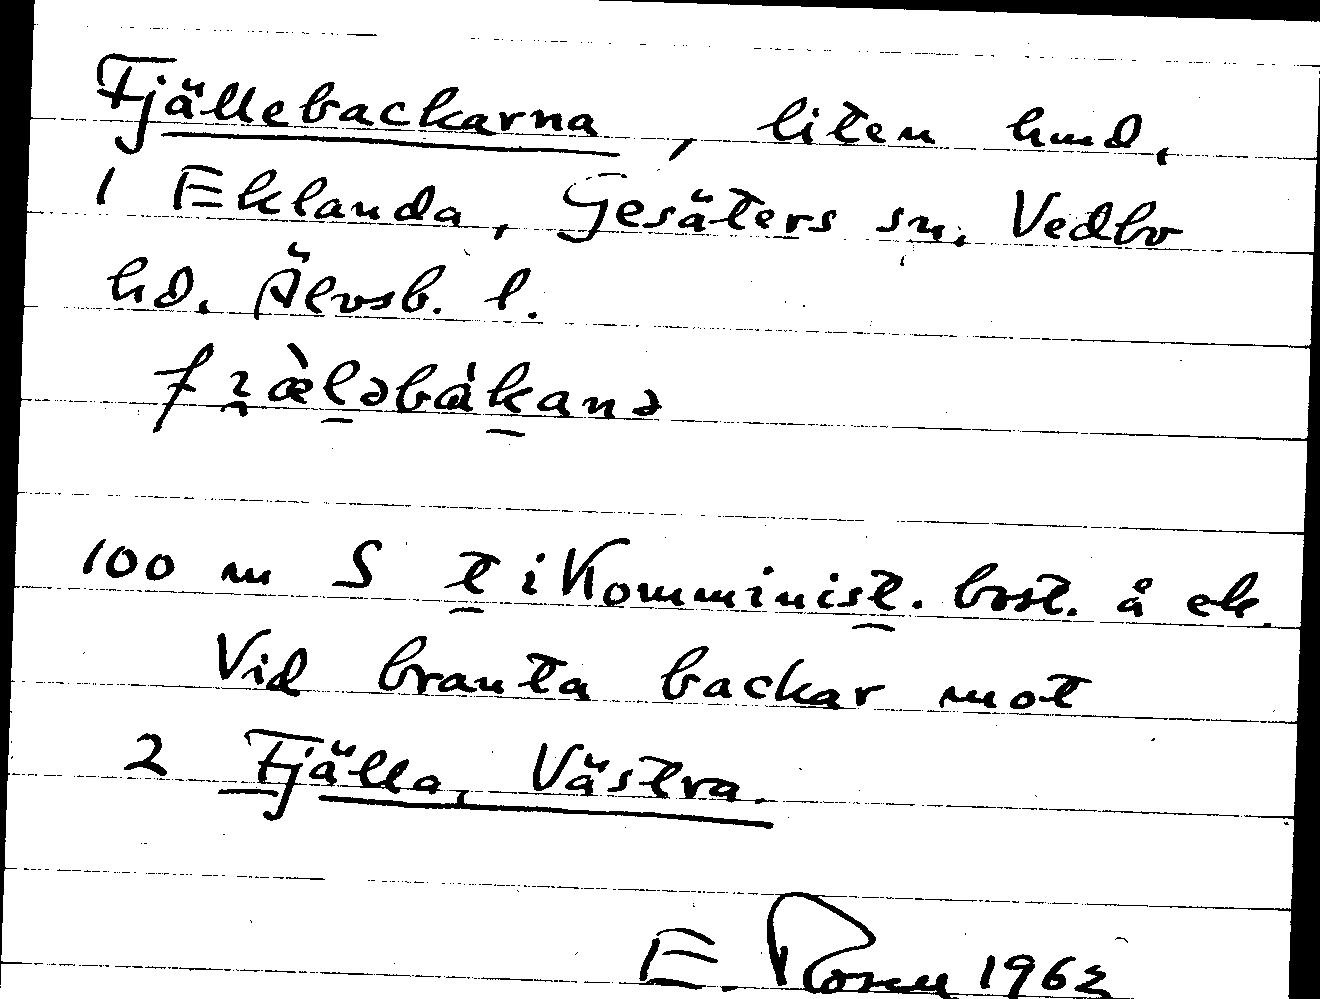 Fjällebackarna, liten hmd,
1 Eklanda, Gesäters sn. Vedbo
hd. Älvsb. l.
100 m S t i Komminist. bost. å ek.
Vid branta backar mot
2 Fjälla, Västra.
E. Rosen 1962